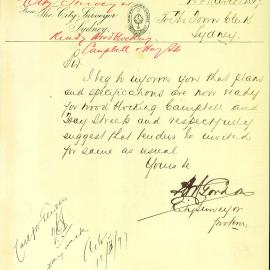 City Surveyor
From The City Surveyor
Sydney
To The Town Clerk
Sydney.
Ready Woodblocking
Campbell & Hay Sts
Sir
I beg to inform you that plans
and specifications are now ready
for wood blocking Campbell and
Hay Streets and respectfully
suggest that tenders be invited
for same as usual
Yours &c
City Surveyor
Call for Tenders